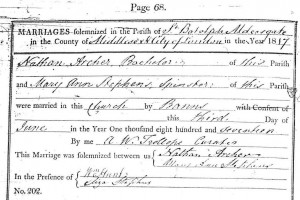 Page 68.
MARRIAGES solemnized in the Parish of St Botolph Aldersgate
in the County of Middlesex & City of London in the Year 1817
Nathan Archer, Bachelor of this Parish
and Mary Ann Stephens, Spinster of this Parish
were married in this Church by Banns with Consent of
this third Day of
June in the Year One thousand eight hundred and seventeen
By me A. W. Trollope Curate
This Marriage was solemnized between us Nathan Archer
Stephens
In the Presence of Wm Hunt
Stephens
No. 202.